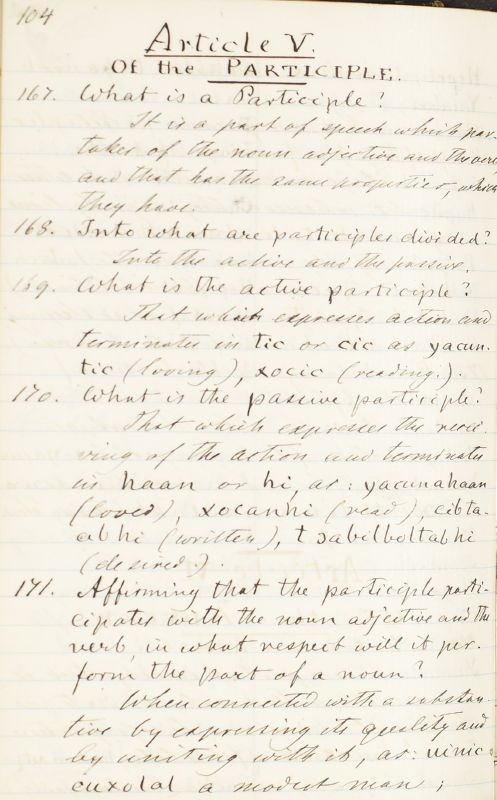 104
Article V.
Of the PARTICIPLE.
167. What is a Participle?
It is a part of speech which par-
takes of the noun adjective and the verb
and that has the same properties, which
they have.
168. Into what are participles divided?
Into the active and the passive.
169. What is the active participle?
That which expresses action and
terminates in tic or cic as yacun-
tic (loving), xocic (reading.).
170. What is the passive participle?
That which expresses the recei-
ving of the action and terminates
in haan or hi, as: yacunahaan
(loved), xocanhi (read), cibta-
abhi (written), tsabilboltabhi
(desired.).
171. Affirming that the participle parti-
cipates with the noun adjective and the
verb, in what respect will it per-
form the part of a noun?
When connected with a substan-
tive by expressing its quality and
by uniting with it, as: uinic
cuxolal a modest man;